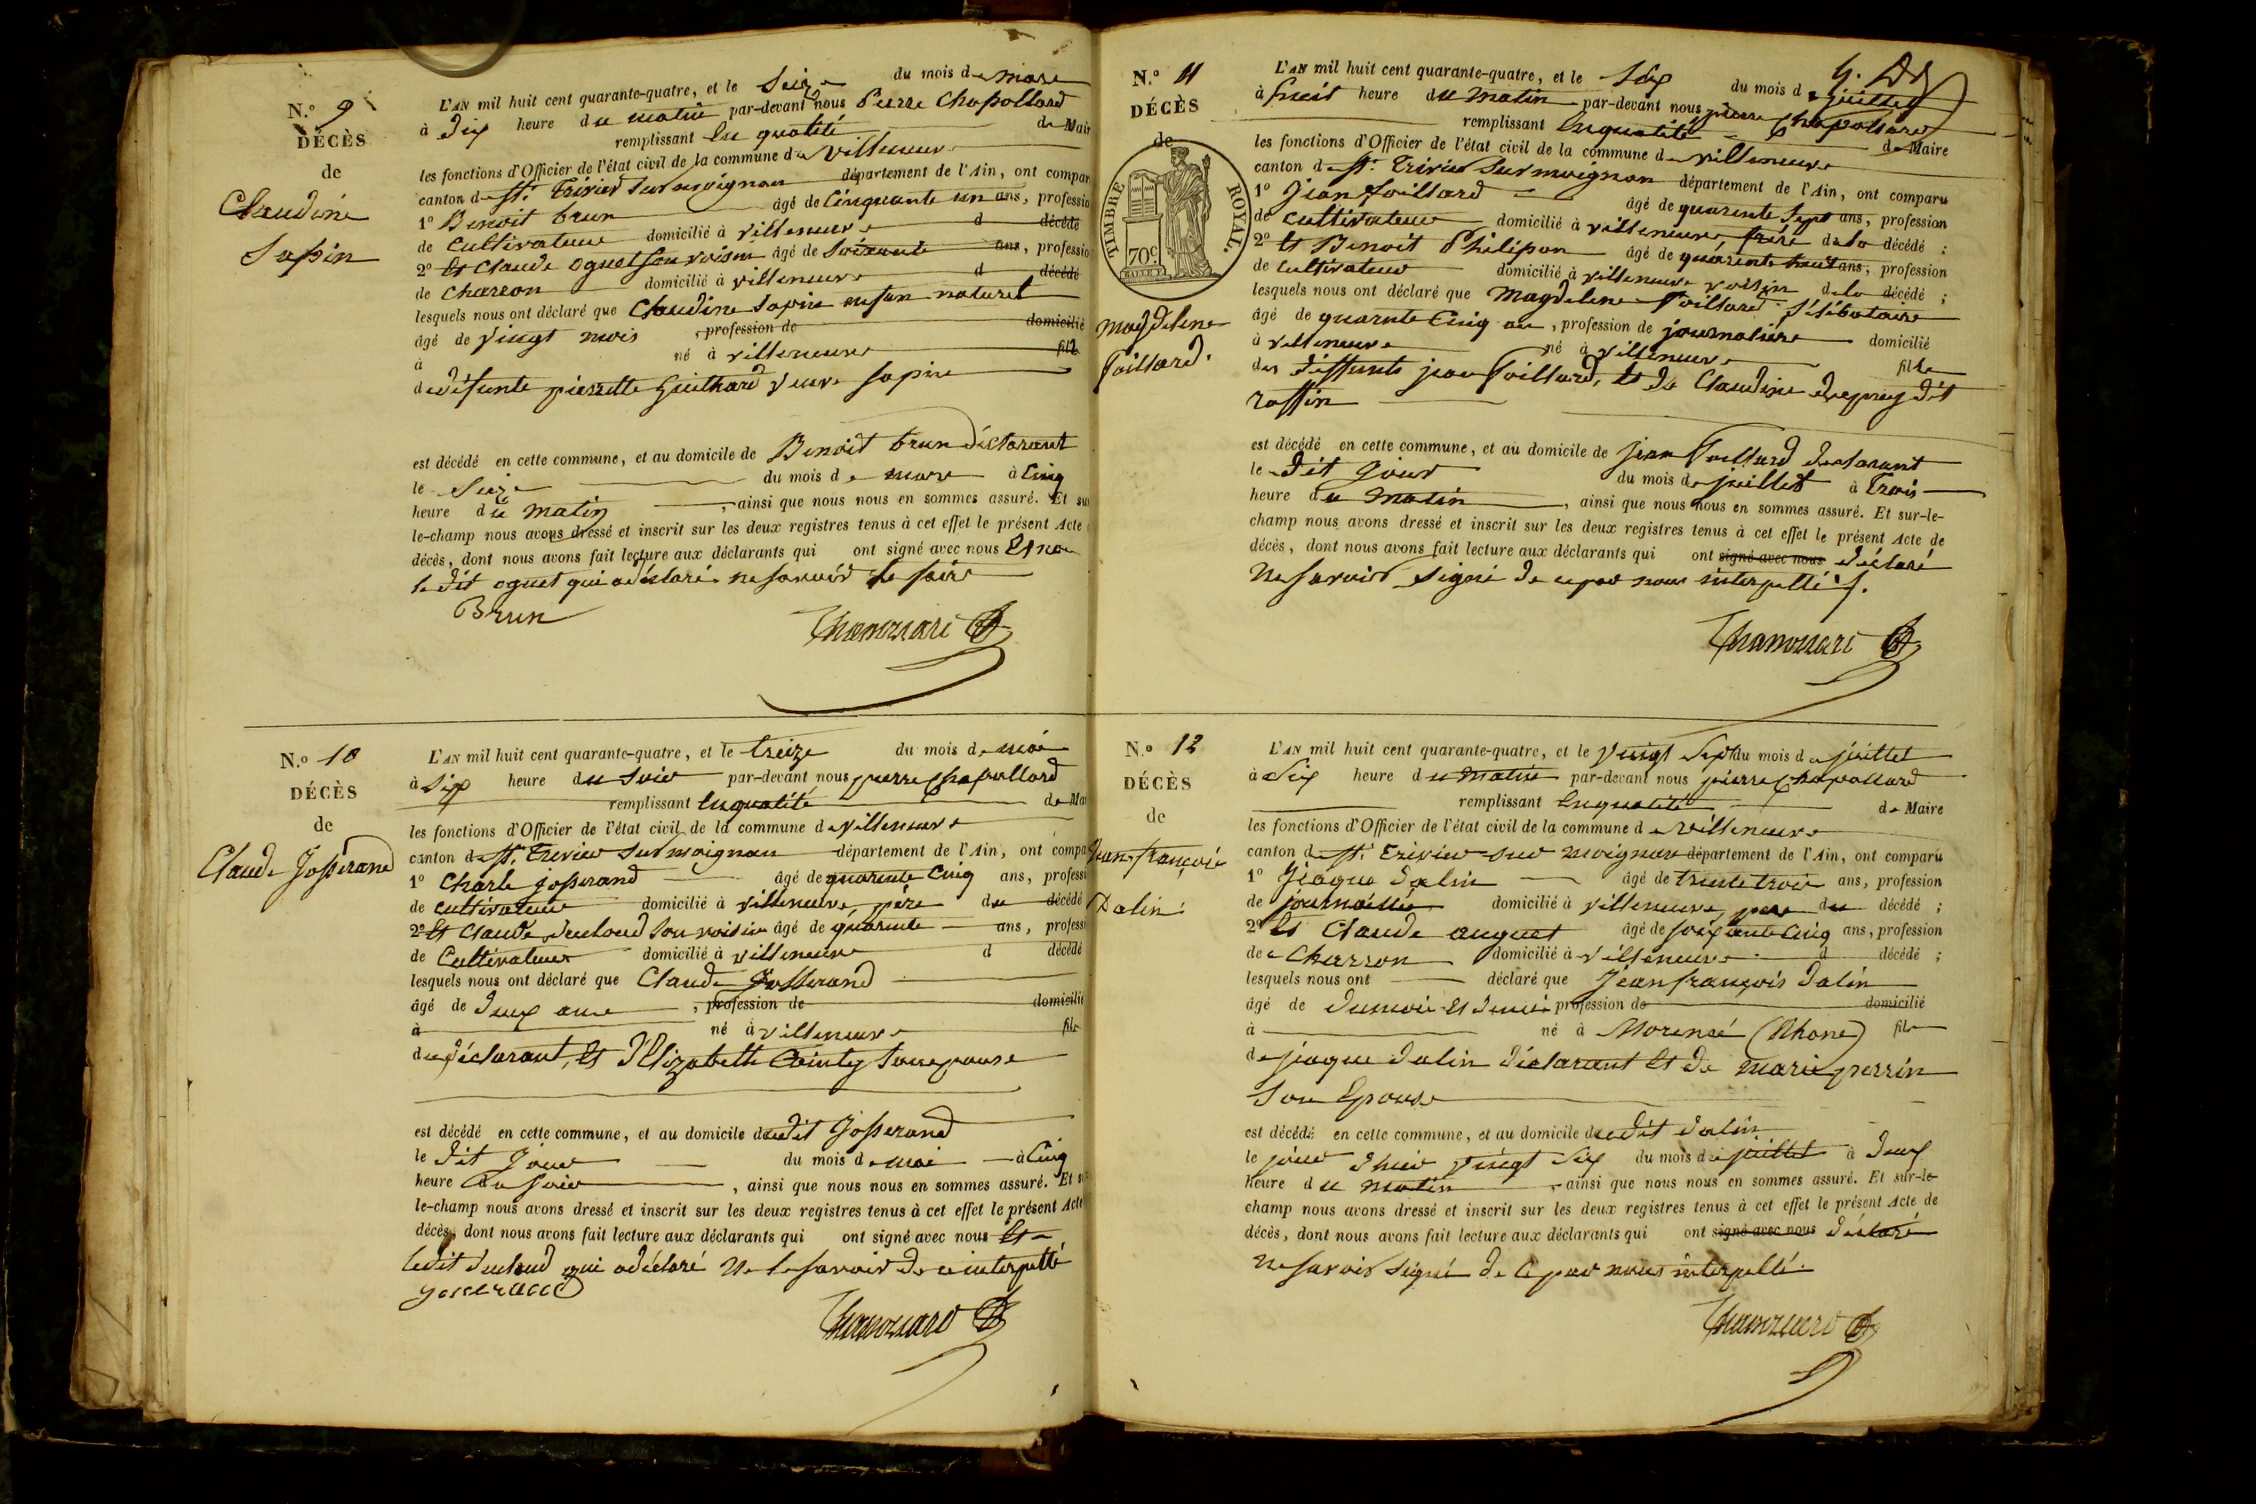 N.º 9
DÉCÈS
de
Claudine
Sapin
L'AN mil huit cent quarante-quatre, et le Seize du mois de mars
à dix heure du matin par-devant nous Pierre Chapollard
remplissant En qualité de Mair
les fonctions d'Officier de l'état civil de la commune de villeneuve
canton de St. Trivier Sur moignan département de l'Ain, ont compar
1º Benoit brun âgé de Cinquante un ans, professio
de Cultivateur domicilié à villeneuve d décédé
2º Et Claude oguet son voisin âgé de Soixante ans, professio
de Charron domicilié à villeneuve d décédé
lesquels nous ont déclaré que Claudine Sapin enfan naturel
âgé de vingt mois , profession de domicilié
à né à villeneuve fill
de défunte pierrette Guithard veuve Sapin
est décédé en cette commune, et au domicile de Benoit brun déclarant
le Seize du mois de mars à Cinq
heure du matin , ainsi que nous nous en sommes assuré. Et su
le-champ nous avons dressé et inscrit sur les deux registres tenus à cet effet le présent Acte
décès, dont nous avons fait lecture aux déclarants qui ont signé avec nous Et non
le dit oguet qui a déclaré ne savoir le faire
Brun
N.º 10
DÉCÈS
de
Claude Josserand
L'AN mil huit cent quarante-quatre, et le treize du mois de mai
à Six heure du Soir par-devant nous pierre Chapollard
remplissant En qualité de Mai
les fonctions d'Officier de l'état civil de la commune de villeneuve
canton de St. Trivier Sur moignan département de l'Ain, ont compa
1º Charle josserand âgé de quarente Cinq ans, professi
de Cultivateur domicilié à villeneuve père du décédé
2º Et Claude ducloud Son voisin âgé de quarente ans, professi
de Cultivateur domicilié à villeneuve d décédé
lesquels nous ont déclaré que Claude Josserand
âgé de deux ans , profession de domicilié
à né à villeneuve fils
du déclarant, Et d'Elizabeth Cointy Son epouse
est décédé en cette commune, et au domicile du dit Josserand
le dit Jour du mois de mai à Cinq
heure du Soir , ainsi que nous nous en sommes assuré. Et su
le-champ nous avons dressé et inscrit sur les deux registres tenus à cet effet le présent Acte
décès, dont nous avons fait lecture aux déclarants qui ont signé avec nous Et
ledit ducloud qui a déclaré Ne le savoir de ce interpellé
Josserand
N.º 11
DÉCÈS
de
TIMBRE ROYAL.
70 C
Magdelene
Foillard.
L'AN mil huit cent quarante-quatre, et le Six du mois de juillet
à huit heure du Matin par-devant nous pierre Chapollard
remplissant En qualité de Maire
les fonctions d'Officier de l'état civil de la commune de villeneuve
canton de St. Trivier Sur moignan département de l'Ain, ont comparu
1º Jean Foillard âgé de quarente Sept ans, profession
de Cultivateur domicilié à villeneuve frère de la décédé ;
2º Et Benoit Philipon âgé de quarente huit ans, profession
de Cultivateur domicilié à villeneuve voisin de la décédé ;
lesquels nous ont déclaré que Magdelene Foillard Célébataire
âgé de quarente Cinq an , profession de journalière domicilié
à villeneuve né à villeneuve fille
des deffunts jean Foillard, Et de Claudine deprey dit
raffin
est décédé en cette commune, et au domicile de jean Foillard declarant
le dit jour du mois de juillet à Trois
heure du Matin , ainsi que nous nous en sommes assuré. Et sur-le-
champ nous avons dressé et inscrit sur les deux registres tenus à cet effet le présent Acte de
décès, dont nous avons fait lecture aux déclarants qui ont signé avec nous déclaré
Ne savoir Signé de ce par nous interpellé s.
N.º 12
DÉCÈS
de
Jean-françois
Dalin
L'AN mil huit cent quarante-quatre, et le vingt Sept du mois de juillet
à Six heure du Matin par-devant nous pierre Chapollard
remplissant En qualité de Maire
les fonctions d'Officier de l'état civil de la commune de villeneuve
canton de St. Trivier sur moignan département de l'Ain, ont comparu
1º Jiaque dalin âgé de trente trois ans, profession
de journallier domicilié à villeneuve, pere du décédé ;
2º Et Claude auguet âgé de soixante Cinq ans, profession
de Charron domicilié à villeneuve d décédé ;
lesquels nous ont déclaré que Jean françois dalin
âgé de du moi Et demi profession de domicilié
à né à Morencé (Rhone) fils
de jiaque dalin déclarant Et de marie perrin
Son Epouse
est décédé en cette commune, et au domicile du dit dalin
le jour dhier vingt Six du mois de juillet à deux
heure du matin , ainsi que nous nous en sommes assuré. Et sur-le-
champ nous avons dressé et inscrit sur les deux registres tenus à cet effet le présent Acte de
décès, dont nous avons fait lecture aux déclarants qui ont signé avec nous déclaré
Ne savoir Signé de ce par nous interpellé.